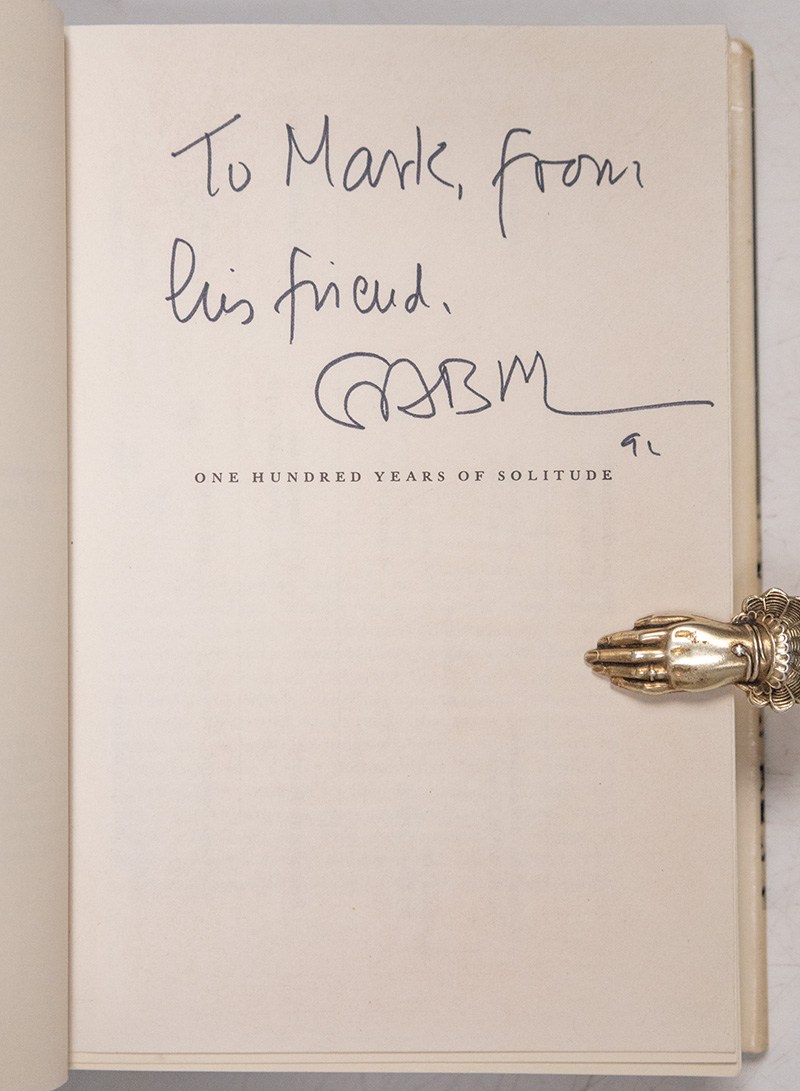 To Mark, from
his friend.
GABM
92
ONE HUNDRED YEARS OF SOLITUDE